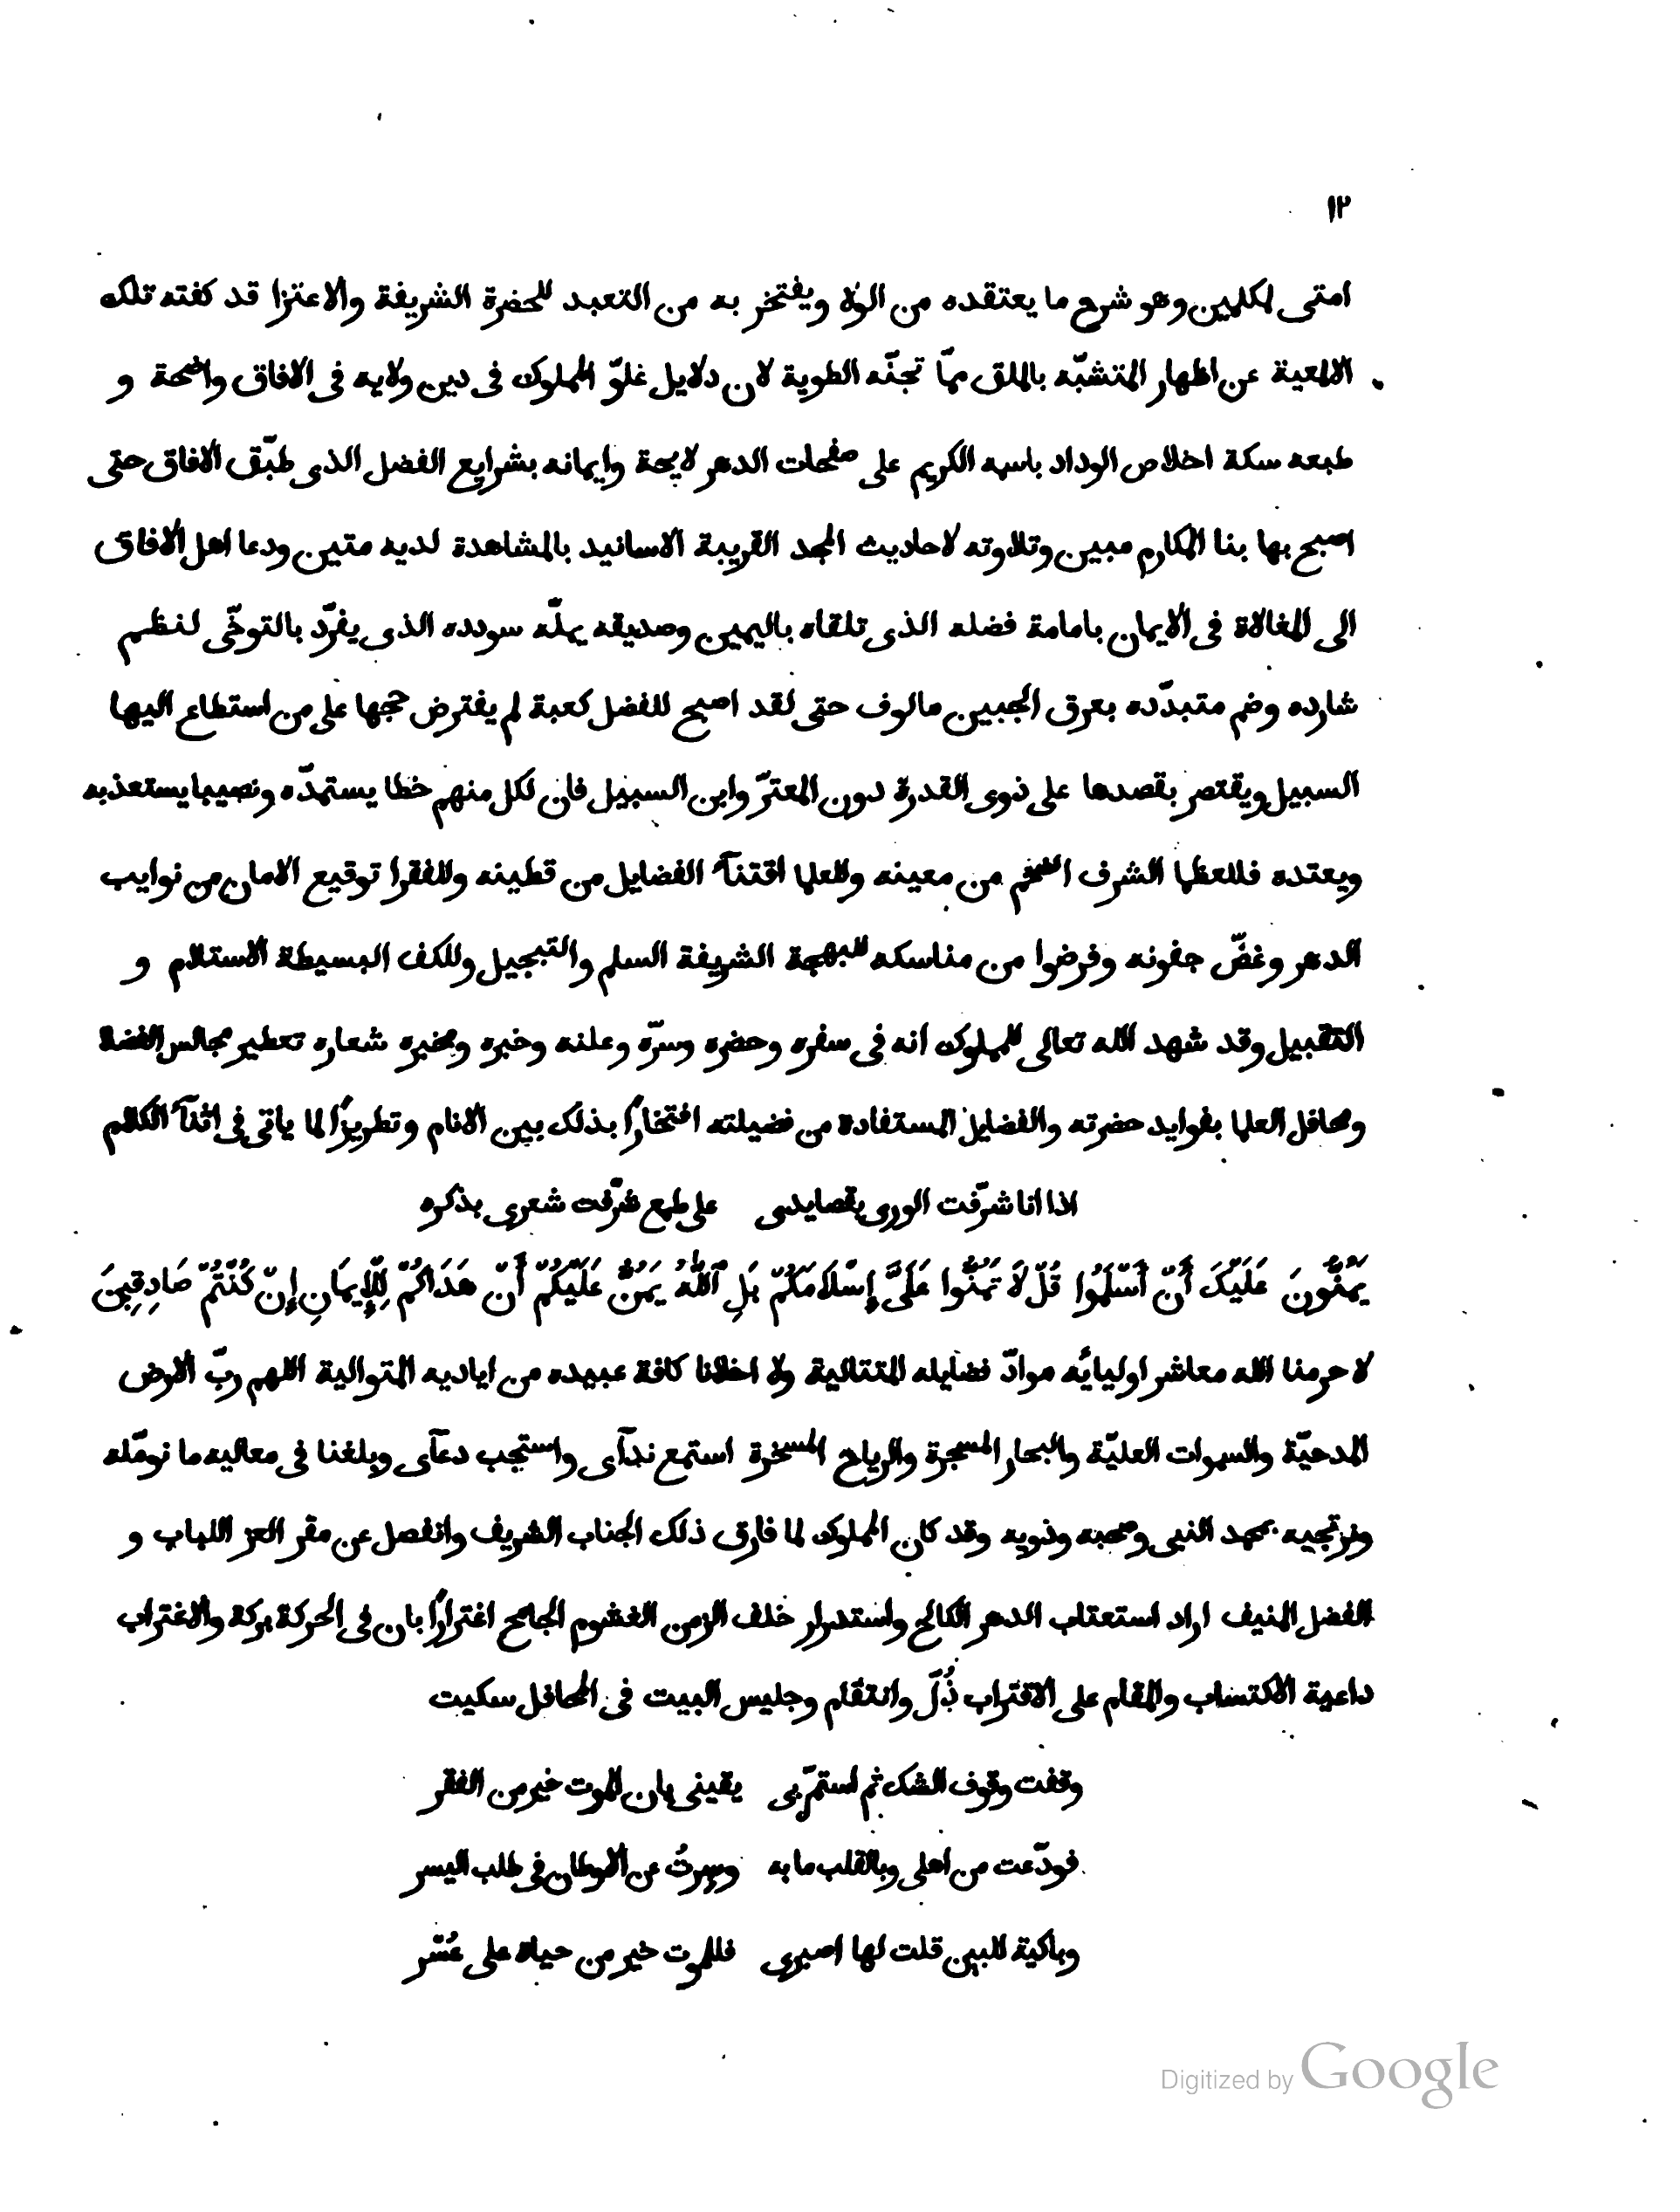 ١٢
امتى لكلمين وهو شرح ما يعتقده من الولا ويفتخر به من التعبد للحضرة الشريفة والاعتزا قد كفته تلك
الالمعية عن اظهار المتشبّه بالملق ممّا تجنّه الطوية لان دلايل غلوّ المملوك فى دين ولايه فى الافاق واضحة و
طبعه سكة اخلاص الوداد باسمه الكريم على صفحات الدهر لايحة وايمانه بشرايع الفضل الذى طبّق الافاق حتى
اصبح بها بنا المكارم مبين وتلاوته لاحاديث المجد القريبة الاسانيد بالمشاهدة لديه متين ودعا اهل الافاق
الى المغالاة فى الايمان بامامة فضله الذى تلقاه باليمين وصديقه بملّه سودده الذى يفرّد بالتوخّى لنظم
شارده وضم متبدّده بعرق الجبين مالوف حتى لقد اصبح للفضل كعبة لم يفترض حجها على من استطاع اليها
السبيل ويقتصر بقصدها على ذوى القدرة دون المعترّ وابن السبيل فان لكل منهم خظا يستمدّه ونصيبا يستعذبه
ويعتده فللعظما الشرف الضخم من معينه وللعلما اقتنآ الفضايل من قطينه وللفقرا توقيع الامان من نوايب
الدهر وغضّ جفونه وفرضوا من مناسكه للبهجة الشريفة السلم والتبجيل وللكف البسيطة الاستلام و
التقبيل وقد شهد الله تعالى للمملوك انه فى سفره وحضره وسرّه وعلنه وخبره ومخبره شعاره تعطير مجالس الفضلا
ومحافل العلما بفوايد حضرته والفضايل المستفادة من فضيلته افتخارًا بذلك بين الانام وتطريزًا لما ياتى فى اثنآ الكلام
اذا انا شرّفت الورى بقصايدى على طمع شرّفت شعرى بذكره
يَمُنُّونَ عَلَيْكَ أَنْ أَسْلَمُوا قُلْ لَا تَمُنُّوا عَلَىَّ إِسْلَامَكُمْ بَلِ ٱللّٰهُ يَمُنُّ عَلَيْكُمْ أَنْ هَدَاكُمْ لِلْإِيمَانِ إِنْ كُنْتُمْ صَادِقِينَ
لا حرمنا الله معاشر اوليايُه موادّ فضايله المتتالية ولا اخلانا كافة عبيده من اياديه المتوالية اللهم ربّ الارض
المدحيّة والسموات العليّة والبحار المسجرة والرياح المسخرة استمع ندآى واستجب دعآى وبلغنا فى معاليه ما نومّله
ونرتجيه بمحمد النبى وصحبه وذويه وقد كان المملوك لما فارق ذلك الجناب الشريف وانفصل عن مقر العز اللباب و
الفضل المنيف اراد استعتاب الدهر الكالح واستدرار خلف الزمن الغشوم الجامح اغترارًا بان فى الحركة بركة والاغتراب
داعية الاكتساب والمقام على الاقتراب ذُلّ وانتقام وجليس البيت فى المحافل سكيت
وقفت وقوف الشك ثم استمرّ بى يقينى بان الموت خير من الفقر
فودّعت من اهلى وبالقلب ما به وسرتُ عن الاوطان فى طلب اليسر
وباكية للبين قلت لها اصبرى فللموت خير من حياة على عُسْر
Digitized by Google